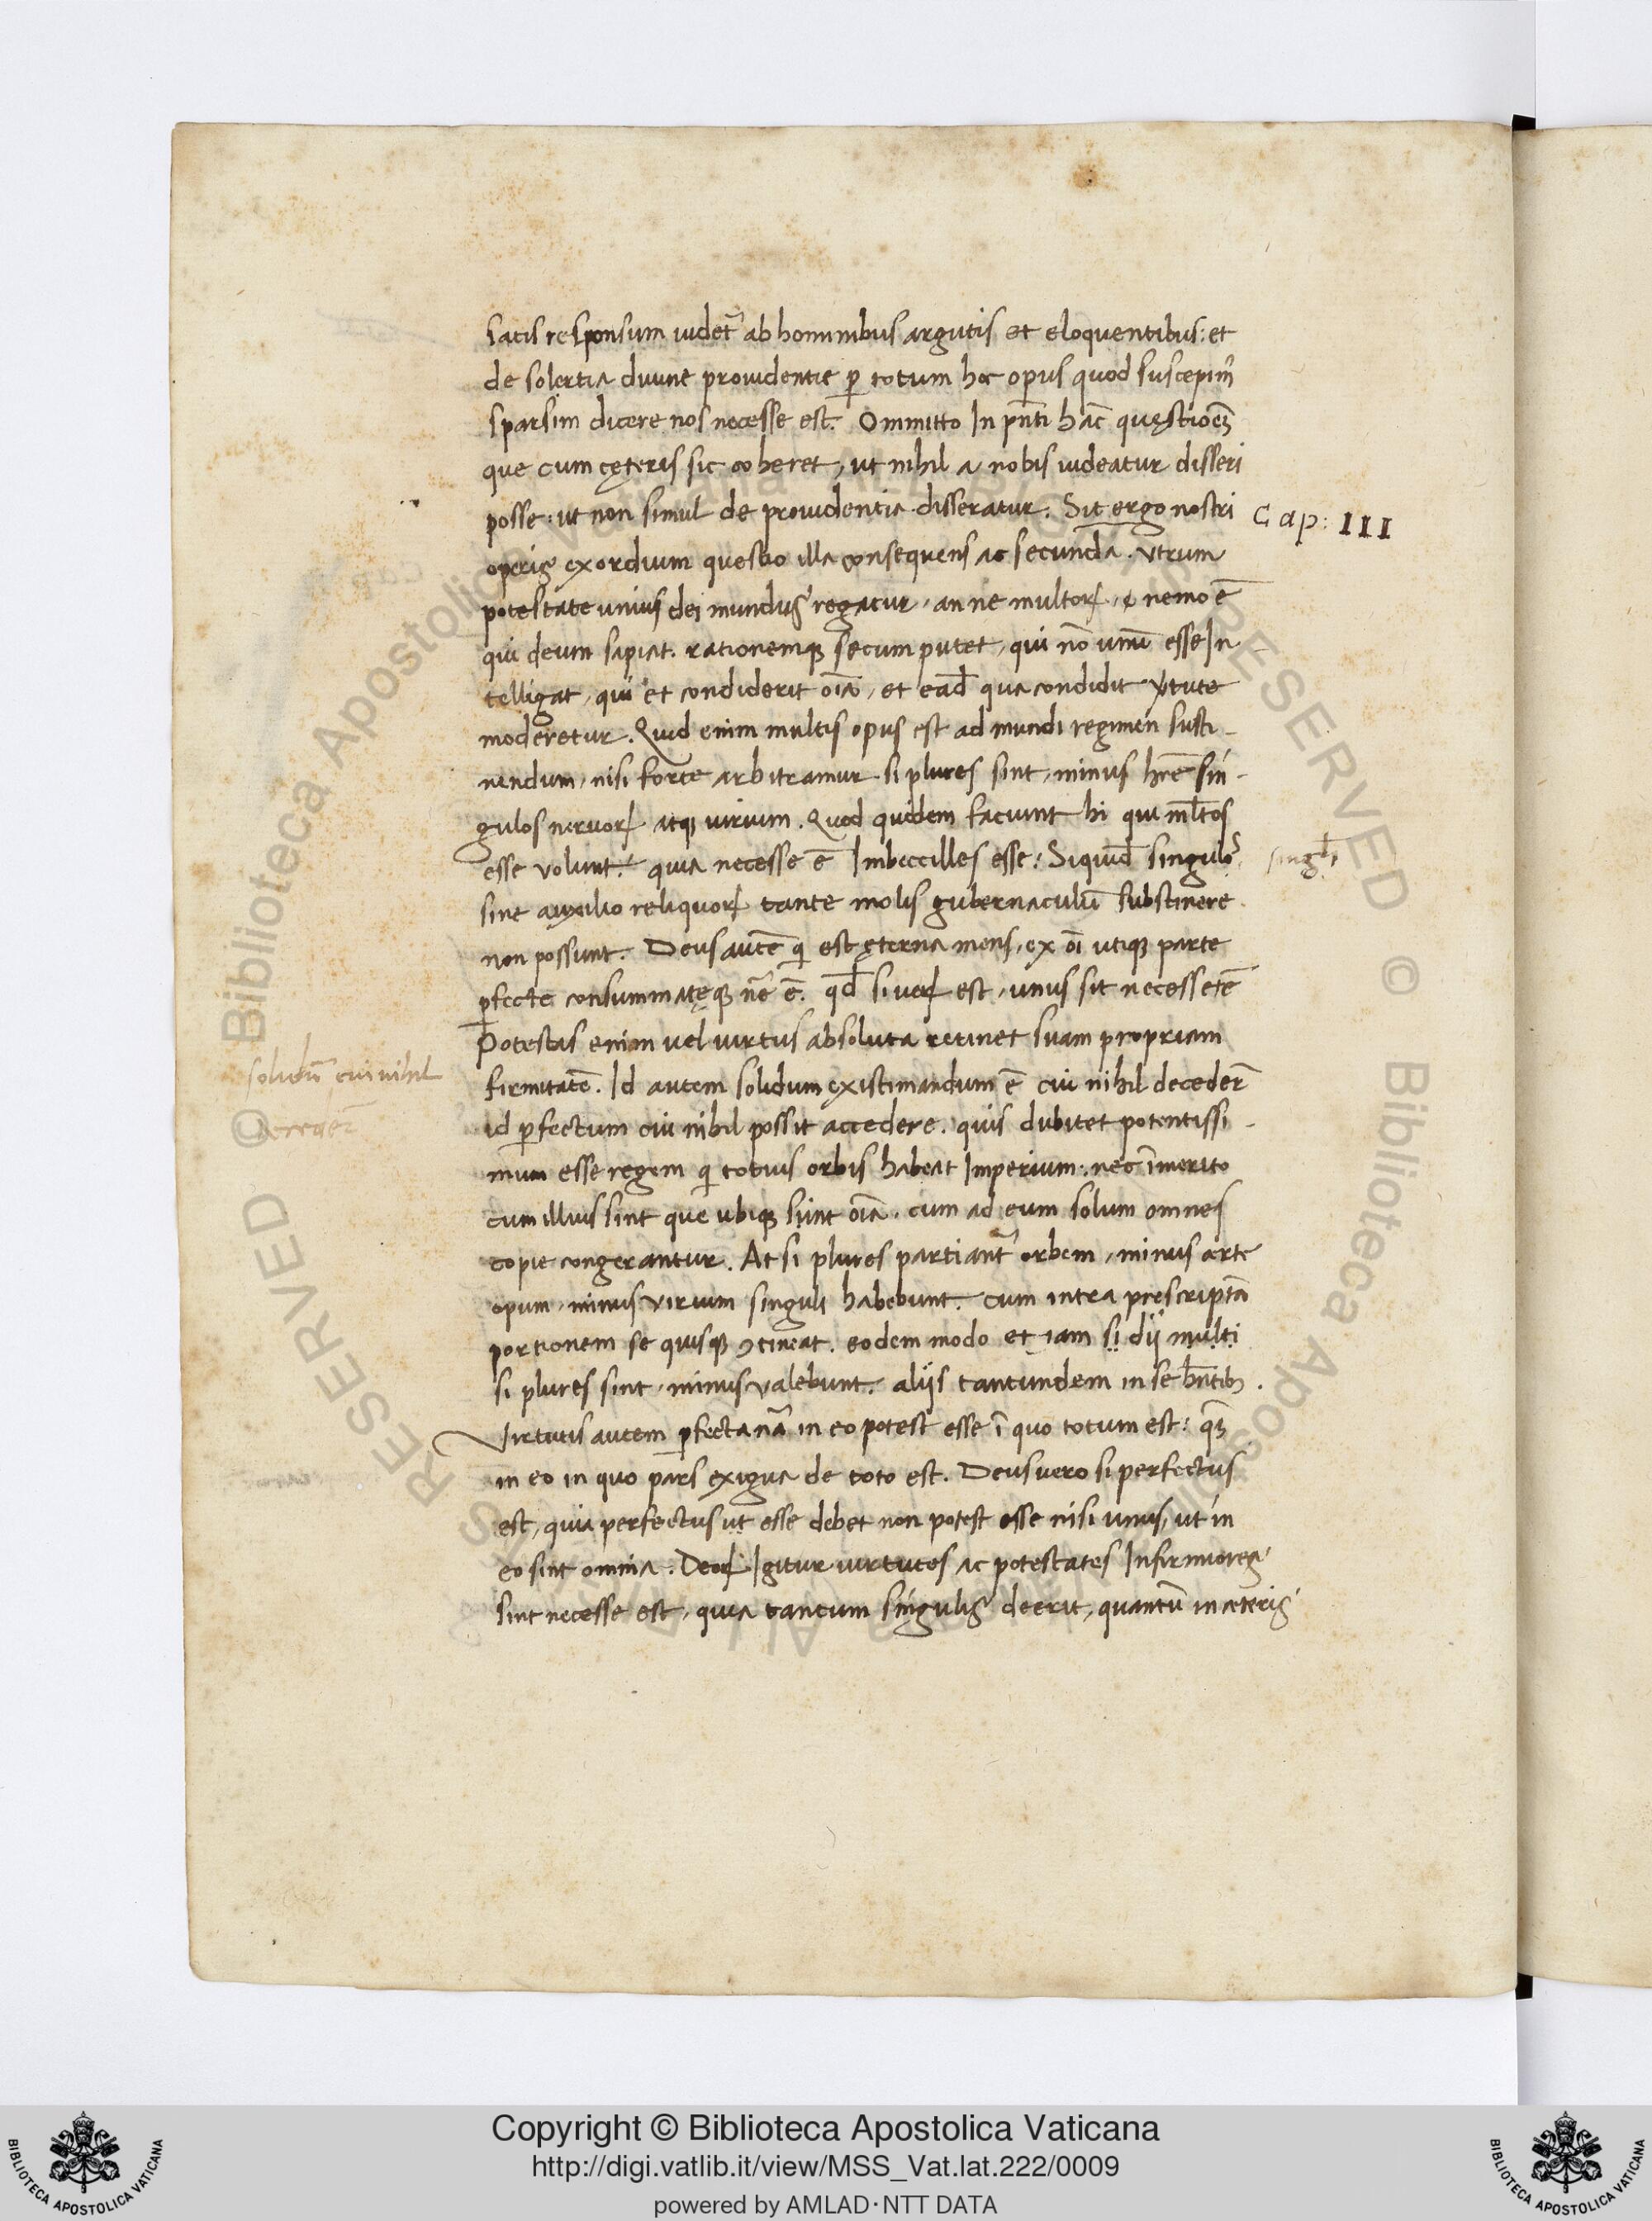 satis responsum uidet᷑ ab hominibus argutis et eloquentibus: et
de solertia diuine prouidentie ꝑ totum hoc opus quod suscepim᷑
sparsim dicere nos necesse est. Ommitto In pñti hãc quęstioẽꝫ
que cum cęteris sic coheret, ut nihil a nobis uideatur disseri
posse: ut non simul de prouidentia disseratur. Sit ergo nostri
Cap: III
operis exordium questio illa consequens ac secunda. Vtrum
potestate unius dei mundus regatur, an ne multoꝝ, nemo ẽ
qui deum sapiat. rationemqꝫ secum putet, qui nõ unũ esse In-
telligat, qui et condiderit oĩa, et ead̃ qua condidit ṽtute
moderetur. Quid enim multis opus est ad mundi regimen susti-
nendum, nisi forte arbitramur si plures sint, minus hr̃e sin-
gulos neruoꝝ atqꝫ uirium. Quod quidem faciunt hi qui ml̃tos
esse volunt. quia necesse ẽ Imbecilles esse: Siquid̃ singulo᷑
singłi
sine auxilio reliquoꝝ tante molis gubernaculũ substinere
non possunt. Deus autẽ qͥ est ęterna mens, ex oĩ utiqꝫ parte
ꝑfecte consummatęqꝫ nẽ ẽ. qd̃ si ueꝝ est, unus sit necesse tẽ
Potestas enim uel uirtus absoluta retinet suam propriam
solidũ cui nihil
firmitatẽ. Id autem solidum existimandum ẽ cui nihil decederẽ
id ꝑfectum cui nihil possit accedere. quis dubitet potentissi-
mum esse regem qͥ totius orbis habeat Imperium. nec ĩmerito
cum illius sint que ubiqꝫ sunt oĩa. cum ad eum solum omnes
copie congerantur. At si plures partiant᷑ orbem, minus certe
opum, minus virium singuli habebunt. cum intra prescriptã
portionem se quisqꝫ ꝯtineat. eodem modo et iam si dij multi
si plures sint, minus valebunt. alijs tantundem in se hñtibꝫ.
Virtutis autem ꝑfecta nã in eo potest esse ĩ quo totum est: qꝫ
in eo in quo pars exigua de toto est. Deus uero si perfectus
est, quia perfectus ut esse debet non potest esse nisi unus, ut in
eo sint omnia. Deoꝝ Igitur uirtutes ac potestates Infirmiores
sint necesse est, quia tantum singulis deerit, quantũ in ceteris
Copyright © Biblioteca Apostolica Vaticana
http://digi.vatlib.it/view/MSS_Vat.lat.222/0009
powered by AMLAD·NTT DATA